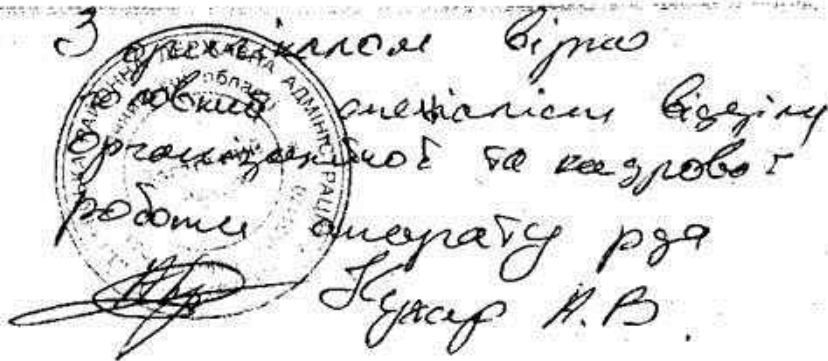 З оригіналом вірно
головний спеціаліст відділу
організаційної та кадрової
роботи апарату рда
Кухар А.В.
РАЙОННА ДЕРЖАВНА АДМІНІСТРАЦІЯ
області